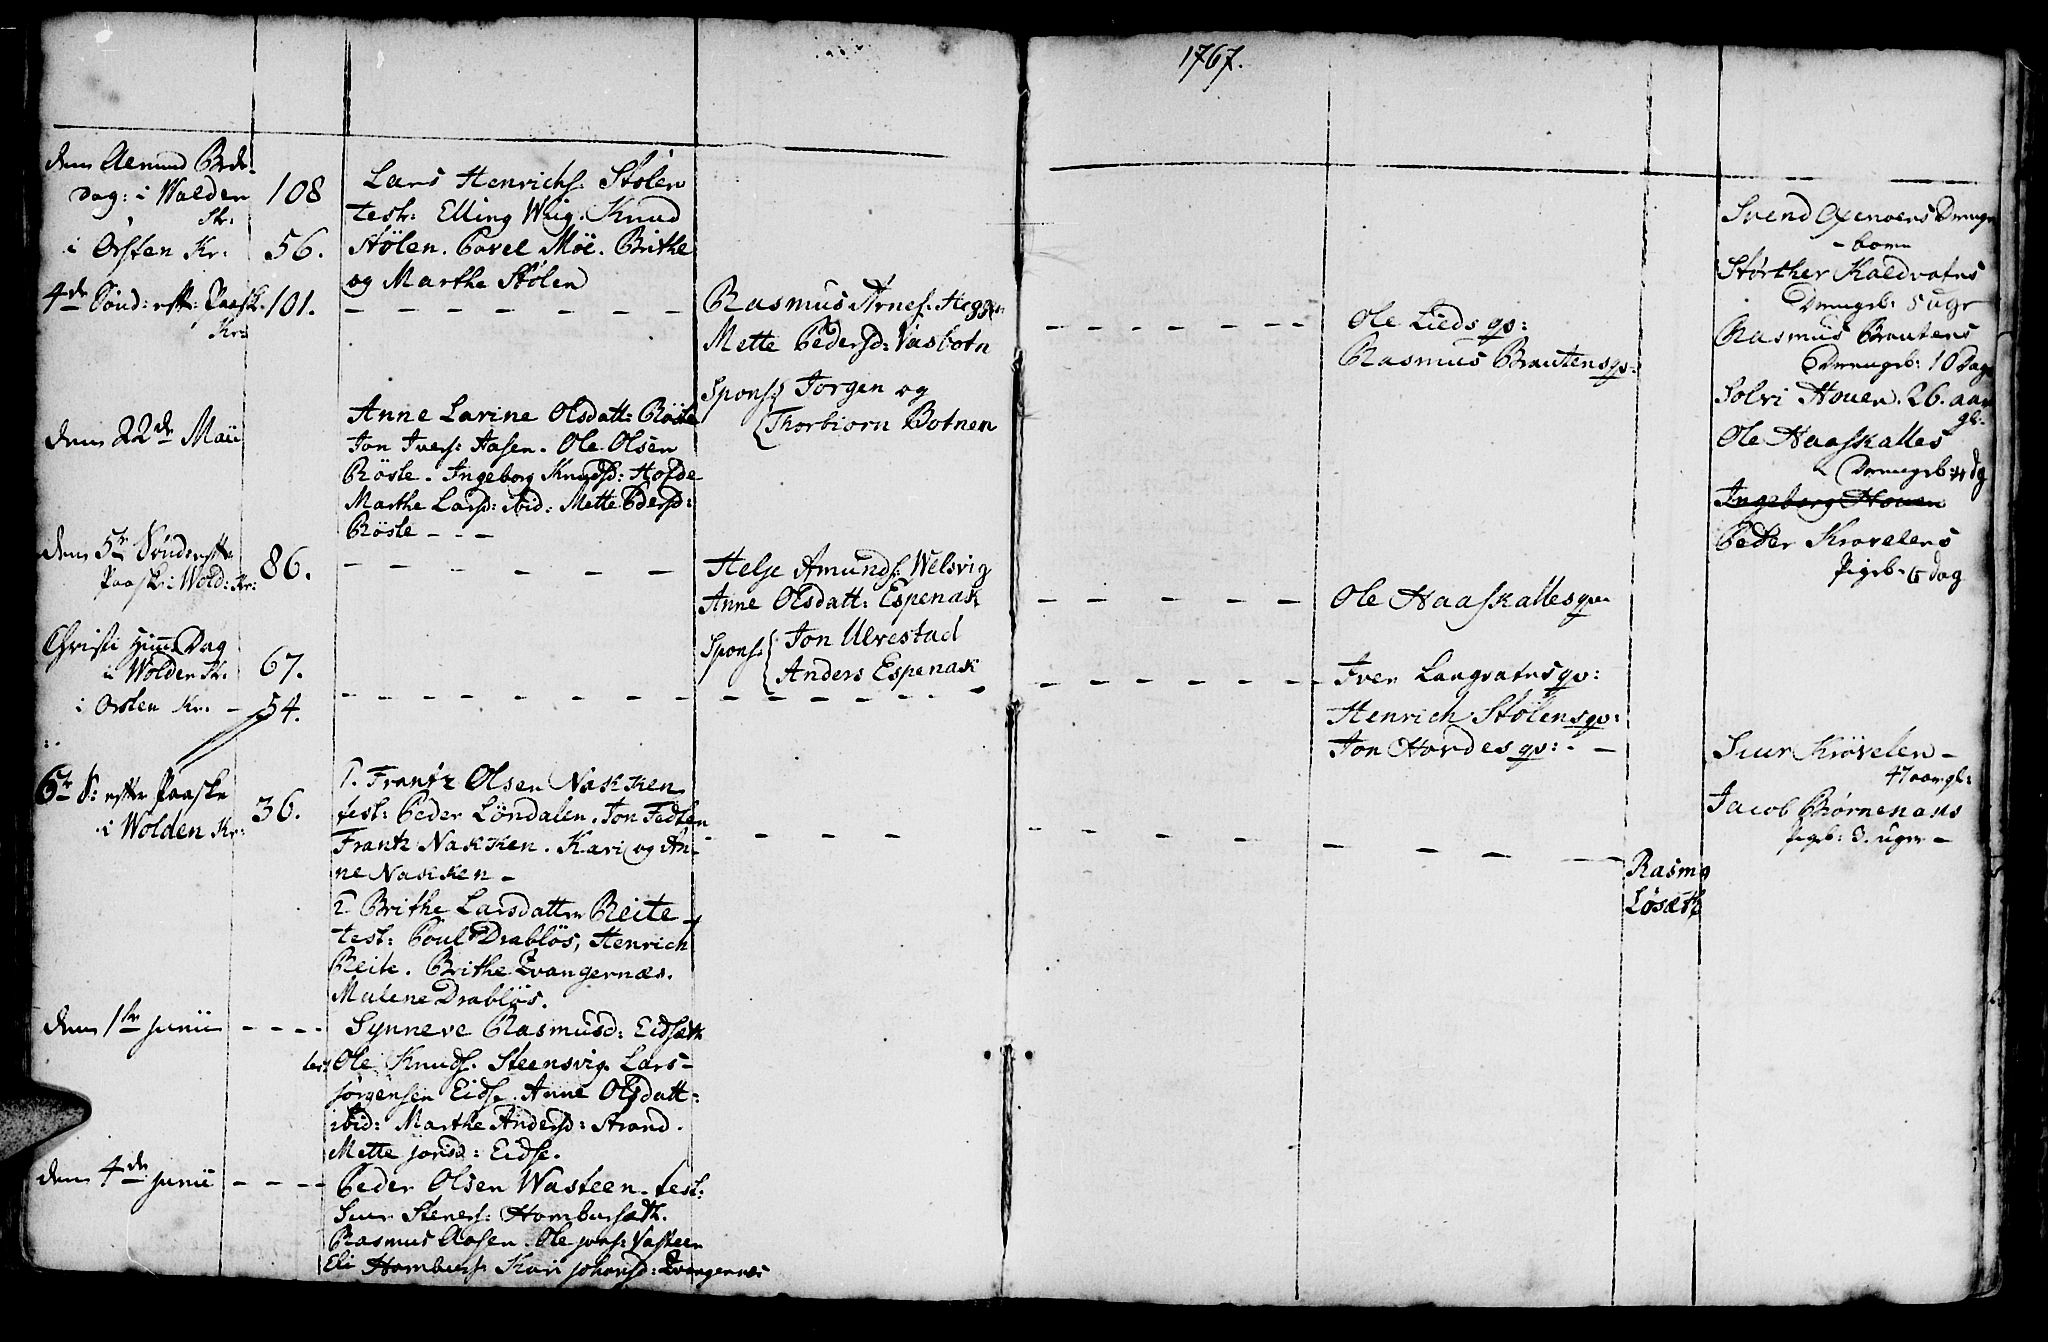 1767.
dem Almind Bede-
dag: i Wolden
Kr:
108
i Orsten Kr:
56.
4de Sönd: eft: Paask:
Kr:
101.
dem 22de Maii
dem 5te Sönd: eft:
Paask: i Wold: Kr:
86.
Christi Himm: Dag
i Wolden Kr.
67.
i Orsten Kr. -
54.
6te S: efter Paaske
i Wolden Kr:
36.
dem 1ste Junii - - - -
dem 4de Junii - - - -
Lars Henrichs: Stölen
test: Elling Wiig. Knud
Stölen. Povel Möe. Brithe
og Marthe Stölen
Anne Larine Olsdatt: Röste
Jon Ivers: Aasen. Ole Olsen
Röste. Ingeborg Knudsd: Hofde
Marthe Larsd: ibid: Mette Pedersd:
Röste - - -
1. Frantz Olsen Nakken
test: Peder Löndalen. Jon Fedten
Frantz Nakken. Kari og An-
ne Nakken -
2 Brithe Larsdatter Reite -
test: Poul Drablös, Henrich
Reite. Brithe Evangernæs.
Malene Drablös.
Synneve Rasmusd: Eidseth
tes: Ole Knuds. Steensvig. Lars-
Jörgensen Eidse. Anne Olsdatt:
ibid: Marthe Andersd: Strand.
Mette Jonsd: Eidse.
Peder Olsen Wasteen. test:
Siur Steners: Homburseth.
Rasmus Aasen. Ole Jons: Vasteen
Eli Homburs: Kari Johansd: Evangernæs
Rasmus Arnes: Hegge
Mette Pedersd: Vasbotn
Spons: { Jorgen og
Thorbiorn Botnen
Helje Amunds: Welsvig
Anne Olsdatt: Espenak
Spons: { Jon Ulvestad
Anders Espenak
Ole Lieds qv:
Rasmus Brautens qv:
Ole Haaskalles qv:
Iver Langvatns qv:
Henrich Stölens qv:
Jon Hovdes qv: - -
Rasmg
Løsæth
Svend Oxenvers Drenge
- barn
Störcher Kaldvatns
Drengeb: 5 ugr
Rasmus Brautens
Drengeb: 10 Dage
Solvi Houen. 26. aar
gl.
Ole Haaskalles
Drengeb: 4 dg
Ingeborg Houen
Peder Krovelens
Pigeb: 6 dag
Siur Krövelen -
47 aar gl:
Jacob Biörnenaus
Pigeb: 3. uger -